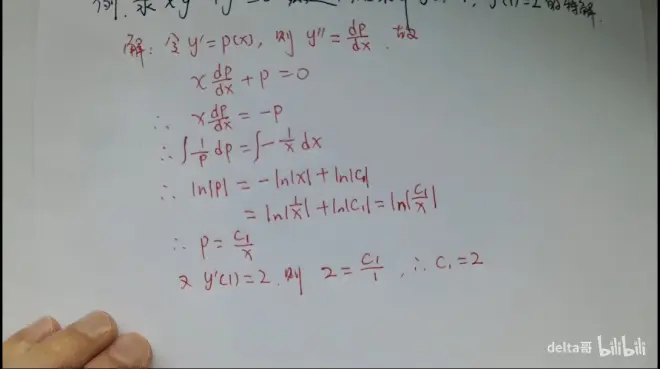 例. 求 xy
y'(1)=2 的特解.
解: 令 y'=p(x), 则 y''=dp/dx. 故
x dp/dx + p = 0
∴ x dp/dx = -p
∴ ∫ 1/p dp = ∫ - 1/x dx
∴ ln|p| = -ln|x| + ln|C₁|
= ln|1/x| + ln|C₁| = ln|C₁/x|
∴ p = C₁/x
又 y'(1)=2. 则 2 = C₁/1, ∴ C₁=2
delta哥 bilibili